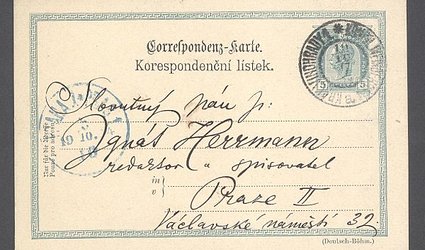 Correspondenz-Karte.
Korespondenční lístek.
Slovutný pán p:
Ignát Herrmann
redaktor a spisovatel
v
Praze II
Václavské náměstí 39
(Deutsch-Böhm.)